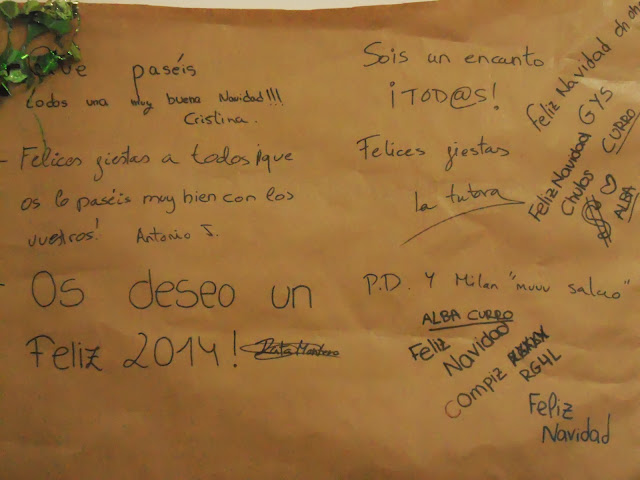 Que paséis
todos una muy buena Navidad!!!
Cristina.
- Felices fiestas a todos ¡que
os lo paséis muy bien con los
vuestros! Antonio J.
- Os deseo un
Feliz 2014!
Sois un encanto
¡TOD@S!
Felices fiestas
la tutora
P.D. Y Milan "muuu salao"
Feliz Navidad oh oh
GYS
CURRO
Feliz Navidad
Chulos
ALBA
ALBA CURRO
Feliz
Navidad
Compiz
RG4L
Feliz
Navidad